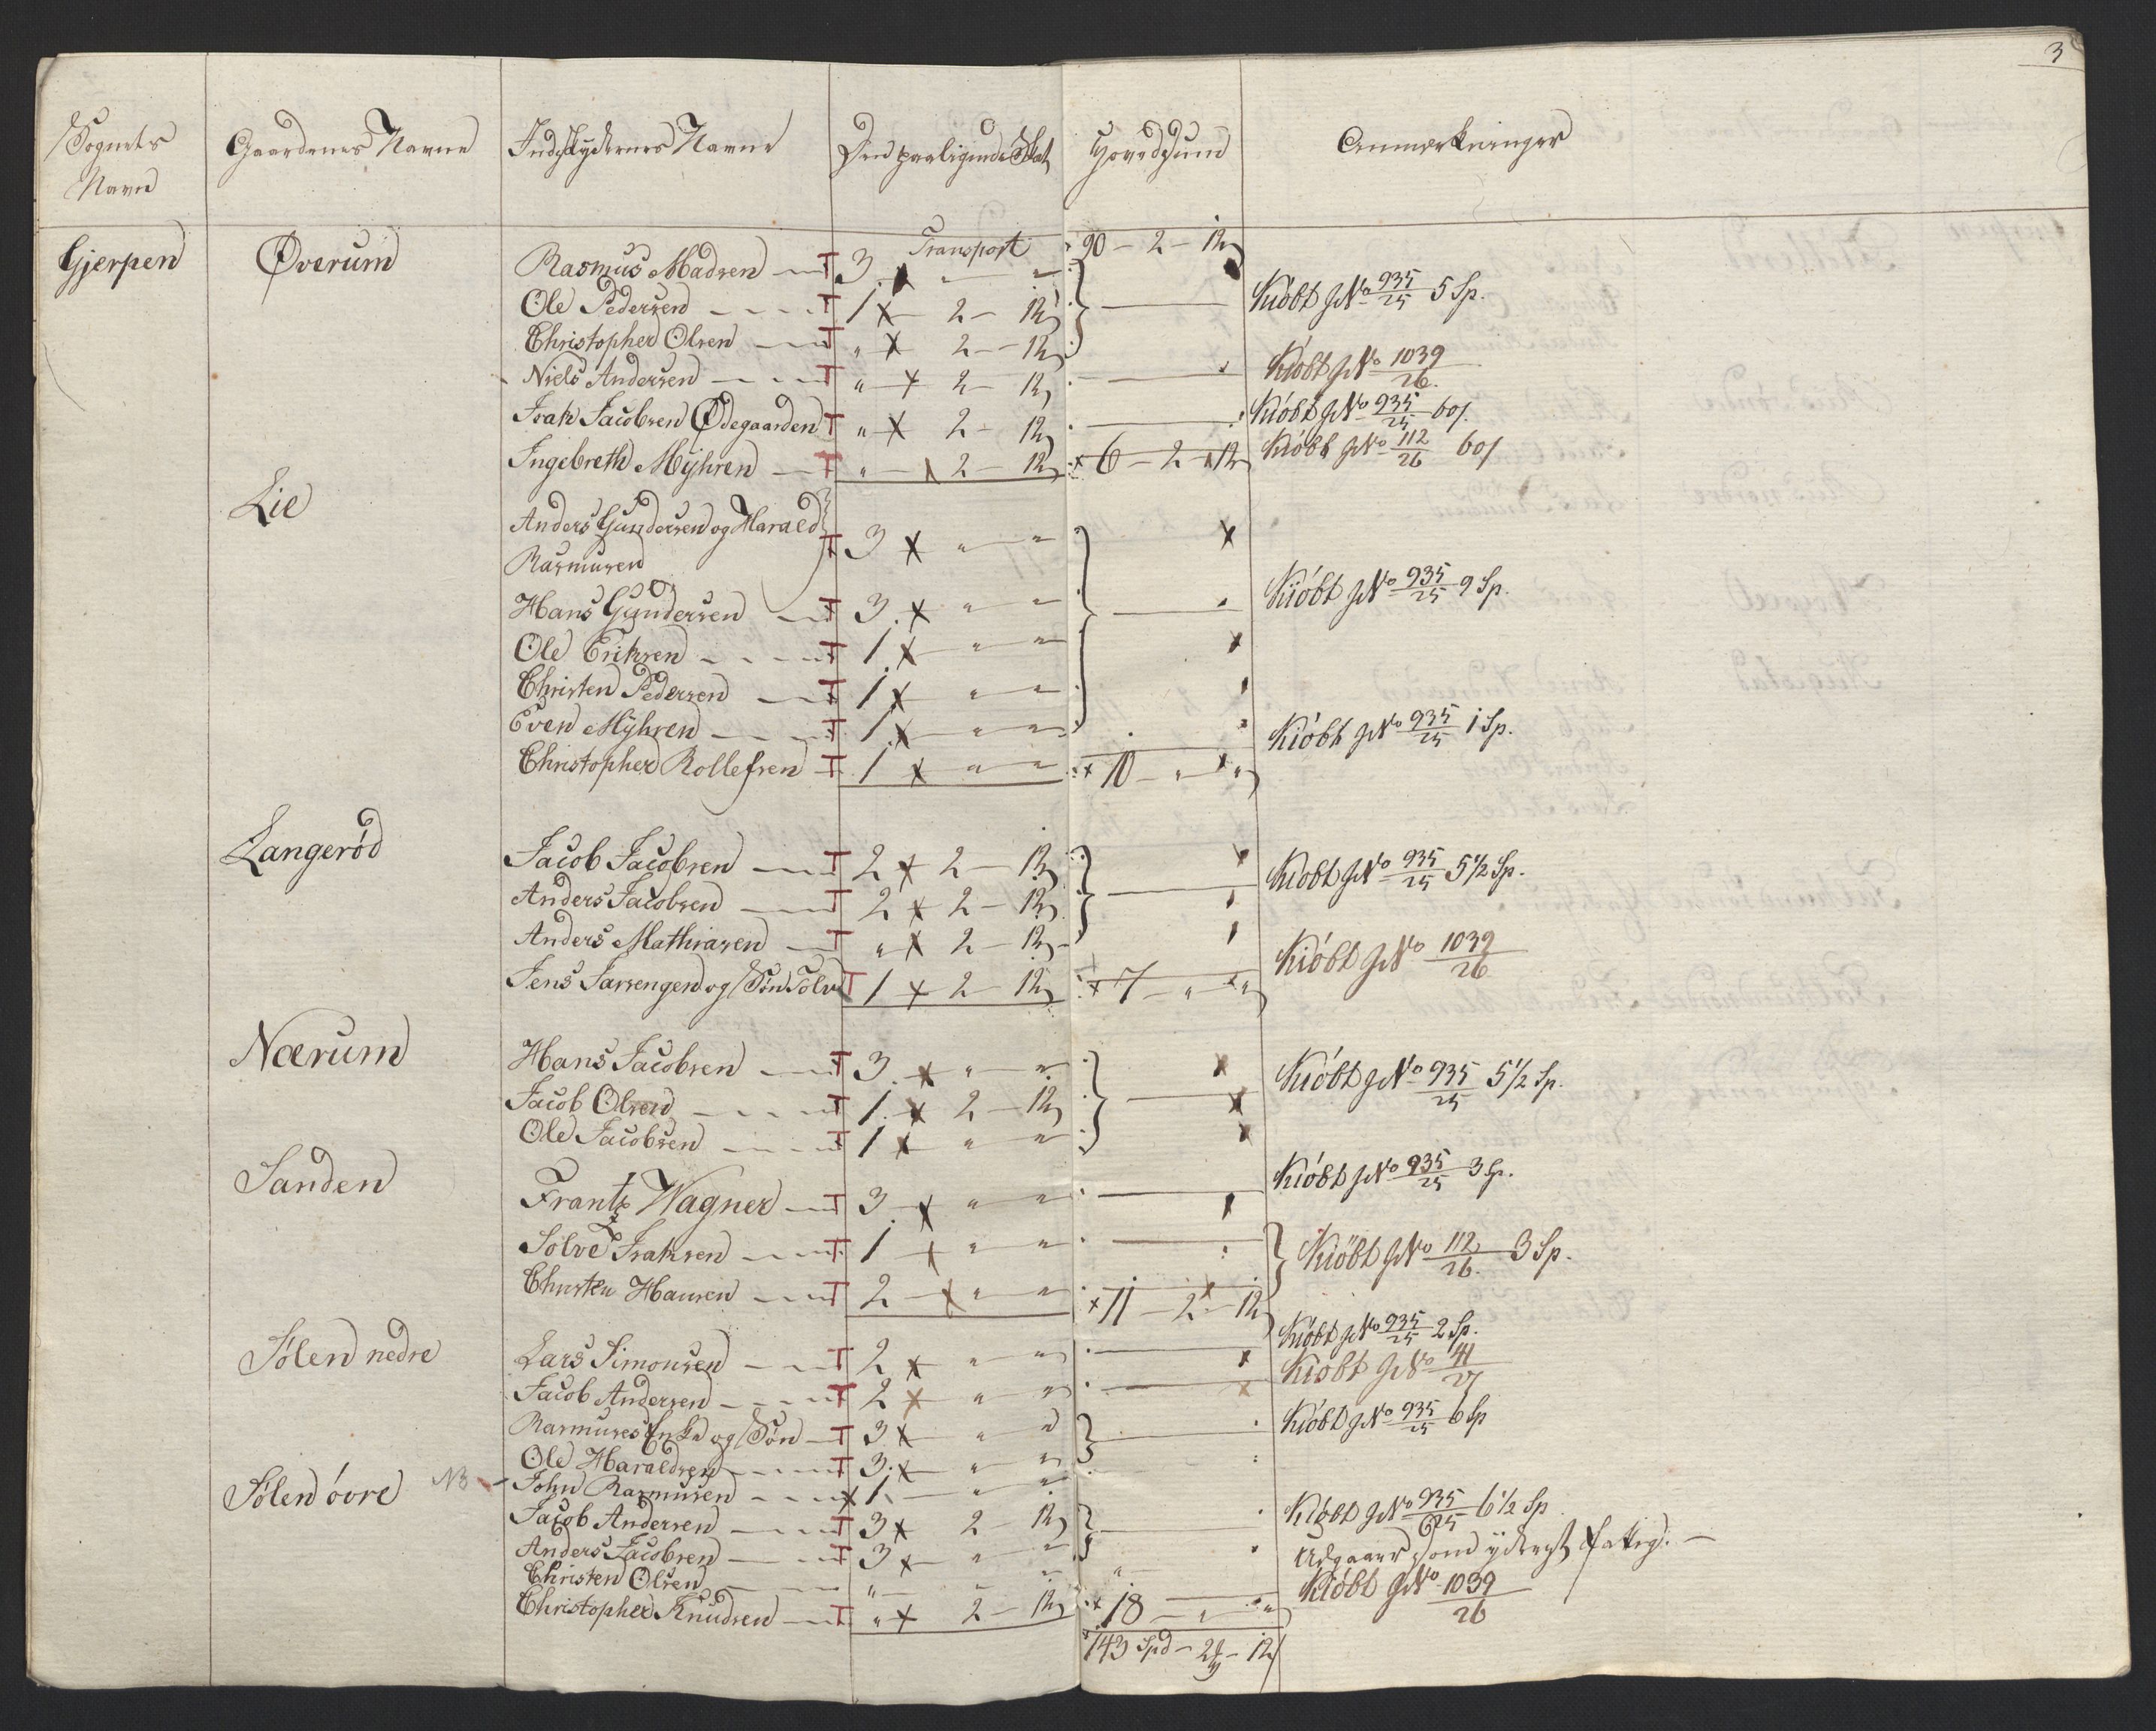 3
Sognets Navn | Gaardenes Navne | Indskydernes Navne | Den paaliginde Skat | Hoved Sum | Anmerkninger
Transport 90 - 2 - 12
Gjerpen Øverum Rasmus Madsen T 3 x " "
Ole Pedersen T 1 x 2 - 12 Kióbt JNo 935/25 5 Sp.
Christopher Olsen T " x 2 - 12
Niels Andersen T " x 2 - 12 Kióbt JNo 1039/26.
Isak Jacobsen Ødegaarden T " x 2 - 12 Kióbt JNo 935/25 60/.
Ingebreth Mÿhren T " x 2 - 12 x 6 - 2 - 12 Kióbt JNo 112/26 60/
Lie Anders Gundersen og Harald
Rasmusen T 3 x " "
Hans Gundersen T 3 x " " Kióbt JNo 935/25 9 Sp.
Ole Eriksen T 1 x " "
Christen Pedersen T 1 x " "
Even Mÿhren T 1 x " " Kióbt JNo 935/25 1 Sp.
Christopher Rollefsen T 1 x " " x 10 - " - "
Langerød Jacob Jacobsen T 2 x 2 - 12 Kióbt JNo 935/25 5 1/2 Sp.
Anders Jacobsen T 2 x 2 - 12
Anders Mathiasen T " x 2 - 12 Kióbt JNo 1039/26
Jens og Søn Sölve T 1 x 2 - 12 x 7 - " - "
Nærum Hans Jacobsen T 3 x " " Kióbt JNo 935/25 5 1/2 Sp.
Jacob Olsen T 1 x 2 - 12
Ole Jacobsen T 1 x " "
Sanden Frantz Wagner T 3 x " " Kióbt JNo 935/25 3 Sp.
Sölve Isaksen T 1 x " " Kióbt JNo 112/26. 3 Sp.
Christen Hansen T 2 x " " x 11 - 2 - 12
Sølen nedre Lars Simonsen T 2 x " " Kióbt JNo 935/25 2 Sp.
Jacob Andersen T 2 x " " Kióbt JNo 41/27
Rasmuses Enke og Søn T 3 x " " Kióbt JNo 935/25 6 Sp
Ole Haraldsen T 3 x " "
Sølen óvre NB John Rasmusen x 1 " "
Jacob Andersen T 3 x 2 - 12 Kióbt JNo 935/25 6 1/2 Sp
Anders Jacobsen T 3 x " "
Christen Olsen " - - " Udgaaer som yderst fattig. -
Christopher Knudsen T " x 2 - 12 x 18 - " - " Kióbt JNo 1039/26
143 Spd - 2 - 12/